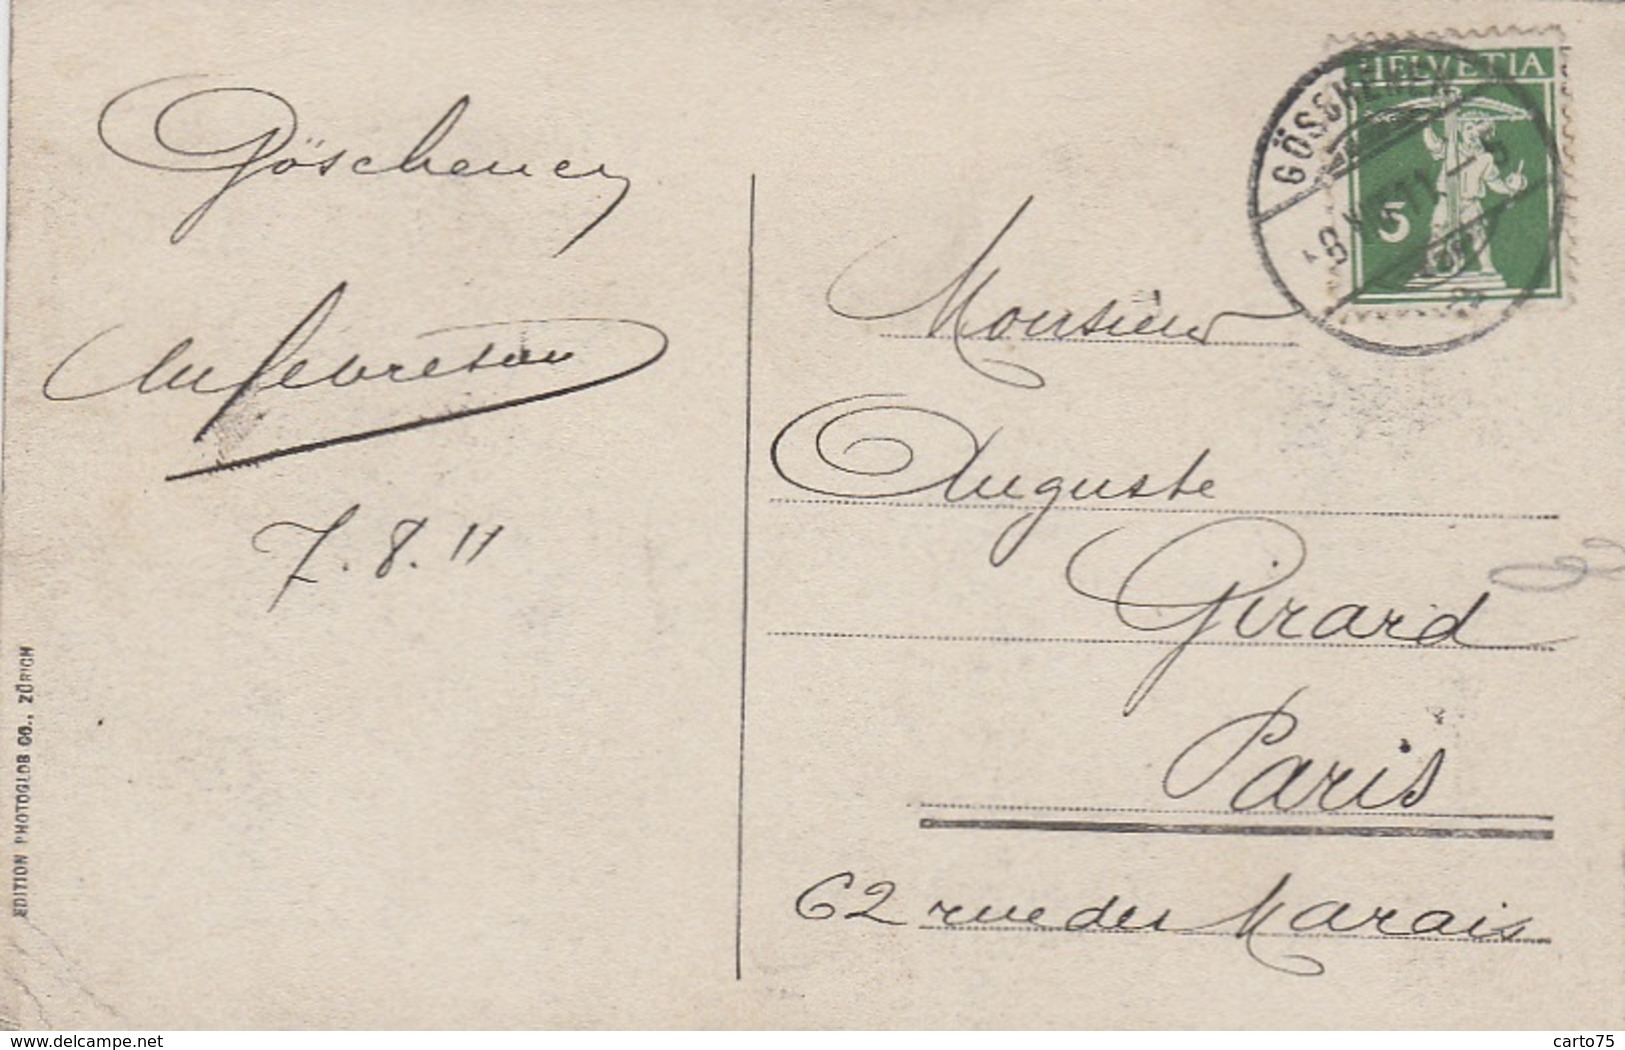 Göschenen
7.8.11
EDITION PHOTOGLOB CO., ZÜRICH
HELVETIA
5
GÖSCHENEN
Monsieur
Auguste
Girard
Paris
62 rue des Marais
delcampe.net
carto75